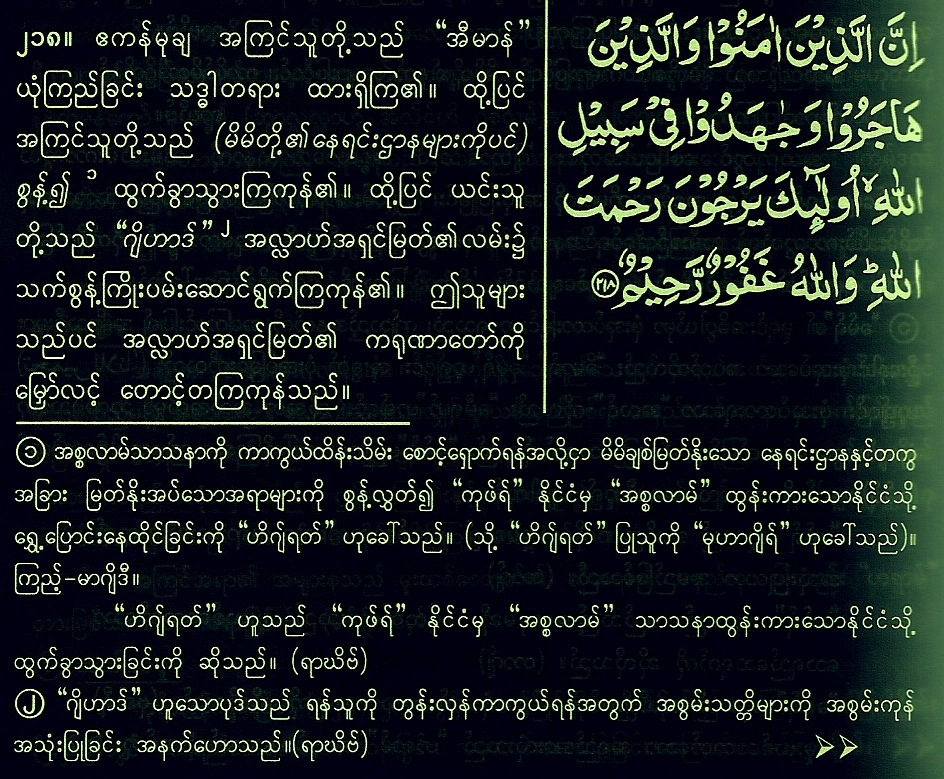 ၂၁၈။ ဧကန်မုချ အကြင်သူတို့သည် “အီမာန်”
ယုံကြည်ခြင်း သဒ္ဓါတရား ထားရှိကြ၏။ ထို့ပြင်
အကြင်သူတို့သည် (မိမိတို့၏နေရင်းဌာနများကိုပင်)
စွန့်၍ ၁ ထွက်ခွာသွားကြကုန်၏။ ထို့ပြင် ယင်းသူ
တို့သည် “ဂျိဟာဒ်” ၂ အလ္လာဟ်အရှင်မြတ်၏လမ်း၌
သက်စွန့်ကြိုးပမ်းဆောင်ရွက်ကြကုန်၏။ ဤသူများ
သည်ပင် အလ္လာဟ်အရှင်မြတ်၏ ကရုဏာတော်ကို
မြှော်လင့် တောင့်တကြကုန်သည်။
اِنَّ الَّذِيْنَ اٰمَنُوْا وَالَّذِيْنَ
هَاجَرُوْا وَجٰهَدُوْا فِيْ سَبِيْلِ
اللّٰهِ ۙ اُولٰٓئِكَ يَرْجُوْنَ رَحْمَتَ
اللّٰهِ ؕ وَاللّٰهُ غَفُوْرٌ رَّحِيْمٌ ﴿٢١٨﴾
① အစ္စလာမ်သာသနာကို ကာကွယ်ထိန်းသိမ်း စောင့်ရှောက်ရန်အလို့ငှာ မိမိချစ်မြတ်နိုးသော နေရင်းဌာနနှင့်တကွ
အခြား မြတ်နိုးအပ်သောအရာများကို စွန့်လွှတ်၍ “ကုဖ်ရ်” နိုင်ငံမှ “အစ္စလာမ်” ထွန်းကားသောနိုင်ငံသို့
ရွှေ့ပြောင်းနေထိုင်ခြင်းကို “ဟိဂျ်ရတ်” ဟုခေါ်သည်။ (သို့ “ဟိဂျ်ရတ်” ပြုသူကို “မုဟာဂျိရ်” ဟုခေါ်သည်)။
ကြည့်-မာဂျိဒီ။
“ဟိဂျ်ရတ်” ဟူသည် “ကုဖ်ရ်” နိုင်ငံမှ “အစ္စလာမ်” သာသနာထွန်းကားသောနိုင်ငံသို့
ထွက်ခွာသွားခြင်းကို ဆိုသည်။ (ရာဃိဗ်)
② “ဂျိဟာဒ်” ဟူသောပုဒ်သည် ရန်သူကို တွန်းလှန်ကာကွယ်ရန်အတွက် အစွမ်းသတ္တိများကို အစွမ်းကုန်
အသုံးပြုခြင်း အနက်ဟောသည်။(ရာဃိဗ်)